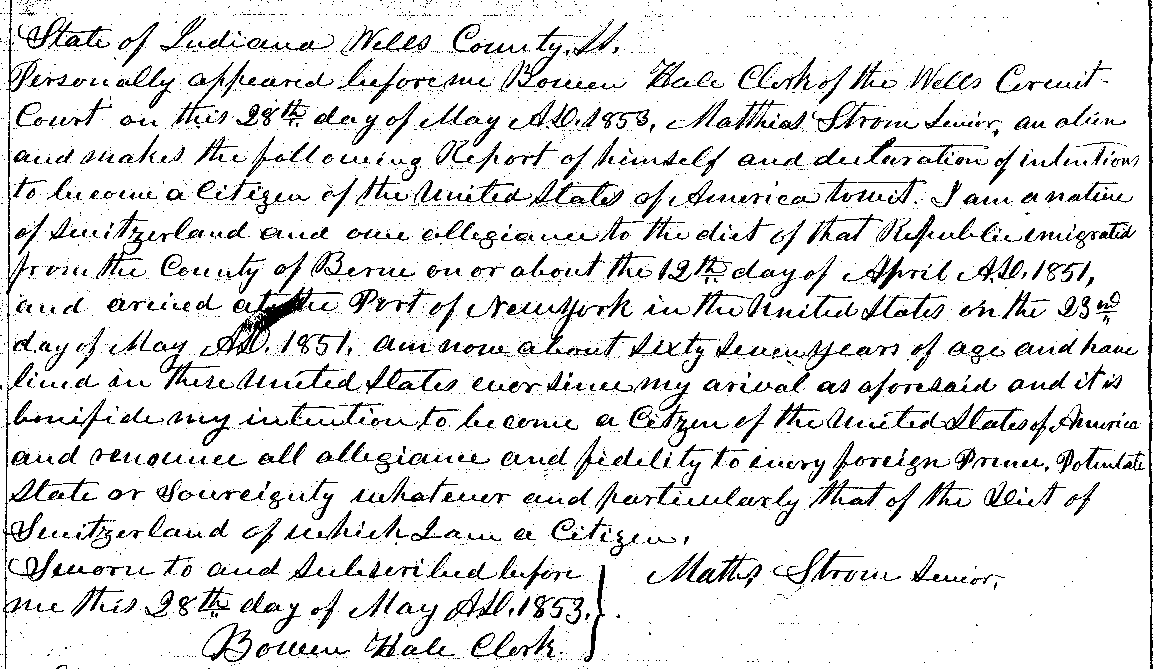 State of Indiana Wells County, Ss.
Personally appeared before me Bowen Hale Clerk of the Wells Circuit
Court on this 28th day of May A.D. 1853, Matthias Strom Senior, an alien
and makes the following Report of himself and declaration of intentions
to become a Citizen of the United States of America towit. I am a native
of Switzerland and owe allegiance to the diet of that Republic emigrated
from the County of Berne on or about the 12th day of April A.D. 1851,
and arived at the Port of New York in the United States on the 23nd
day of May A.D. 1851, am now about Sixty Seven years of age and have
lived in these United States ever since my arival as aforesaid and it is
bonifide my intention to become a Citzen of the United States of America
and renounce all allegiance and fidelity to every foreign Prince, Potentate
State or Sovreignty whatever and particularly that of the Diet of
Switzerland of which I am a Citizen.
Sworn to and subscribed before } Maths Strom Senior,
me this 28th day of May A.D. 1853.
Bowen Hale Clerk